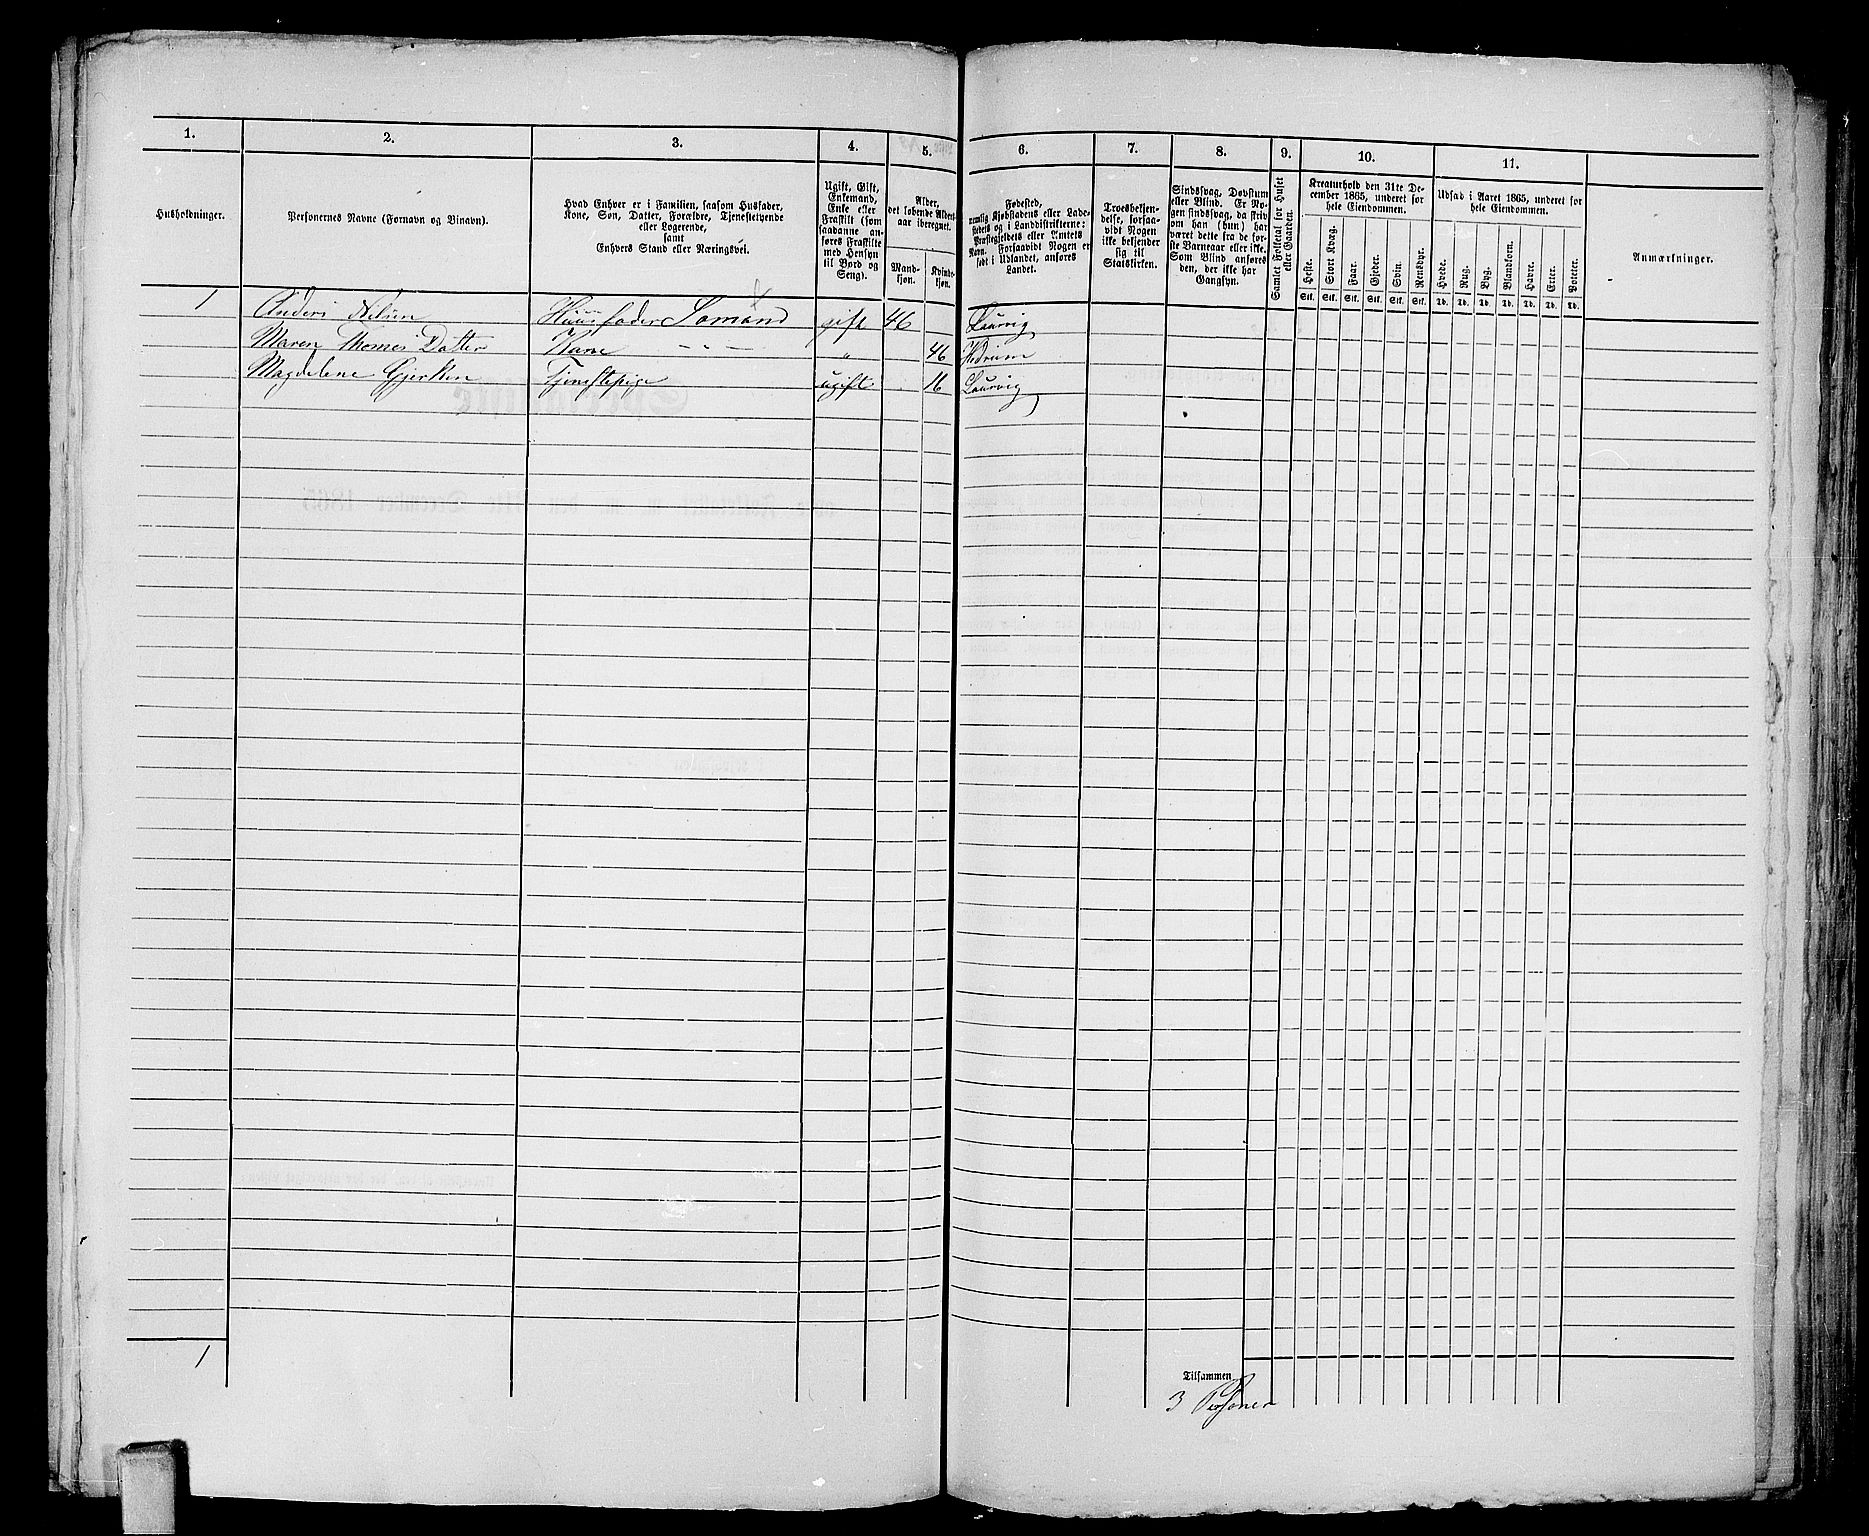 1. 2. 3. 4. 5. 6. 7. 8. 9. 10. 11.
Husholdninger.
Personernes Navne (Fornavn og Binavn).
Hvad Enhver er i Familien, saasom Husfader,
Kone, Søn, Datter, Forældre, Tjenestetyende
eller Logerende,
samt
Enhvers Stand eller Næringsvei.
Ugift, Gift,
Enkemand,
Enke eller
Fraskilt (som
saadanne an-
føres Fraskilte
med Hensyn
til Bord og
Seng).
Alder,
det løbende Alders-
aar iberegnet.
Mand-
kjøn.
Kvinde-
kjøn.
Fødested,
nemlig Kjøbstadens eller Lade-
stedets og i Landdistrikterne:
Præstegjeldets eller Amtets
Navn. Forsaavidt Nogen er
født i Udlandet, anføres
Landet.
Troesbekjen-
delse, forsaa-
vidt Nogen
ikke bekjender
sig til
Statskirken.
Sindssvag, Døvstum
eller Blind. Er No-
gen sindssvag, da skriv
om han (hun) har
været dette fra de før-
ste Barneaar eller ikke.
Som Blind anføres
den, der ikke har
Gangsyn.
Samlet Folketal for Huset
eller Gaarden.
Kreaturhold den 31te De-
cember 1865, underet for
hele Eiendommen.
Heste. Stort Kvæg. Faar. Gjeder. Svin. Rensdyr.
Stk. Stk. Stk. Stk. Stk. Stk.
Udsæd i Aaret 1865, underet for
hele Eiendommen.
Hvede. Rug. Byg. Blandkorn. Havre. Erter. Poteter.
Td. Td. Td. Td. Td. Td. Td.
Anmærkninger.
1 Anders Nilsen Huusfader Sømand gift 46 Laurvig
Maren Thomes Datter Kone - - - " 46 Hedrum
Magdelene Gjerken Tjenestepige ugift 16 Laurvig
1
Tilsammen
3 Personer